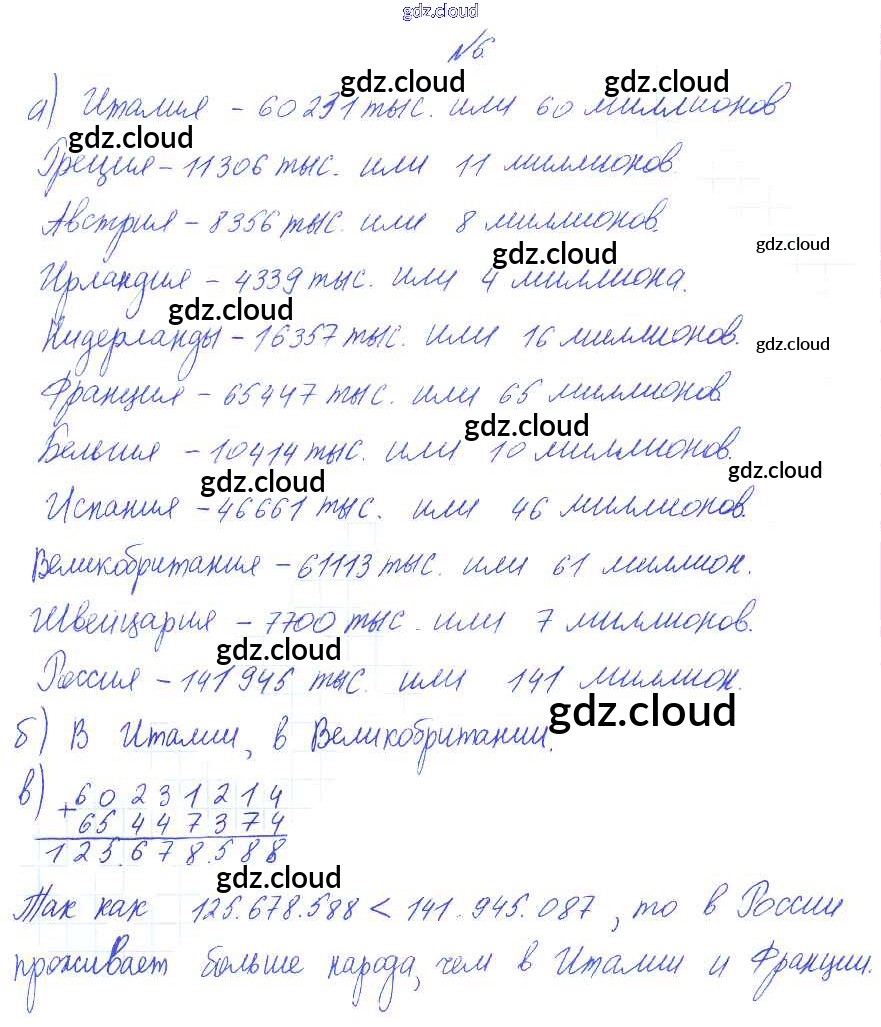 gdz.cloud
№6.
gdz.cloud gdz.cloud
а) Италия – 60 231 тыс. или 60 миллионов
gdz.cloud
Греция – 11306 тыс. или 11 миллионов.
Австрия – 8356 тыс. или 8 миллионов.
gdz.cloud gdz.cloud
Ирландия – 4339 тыс. или 4 миллиона.
gdz.cloud
Нидерланды – 16357 тыс. или 16 миллионов.
gdz.cloud
Франция – 65447 тыс. или 65 миллионов.
gdz.cloud
Бельгия – 10414 тыс. или 10 миллионов.
gdz.cloud gdz.cloud
Испания – 46661 тыс. или 46 миллионов.
Великобритания – 61113 тыс. или 61 миллион.
Швейцария – 7700 тыс. или 7 миллионов.
gdz.cloud
Россия – 141 945 тыс. или 141 миллион.
gdz.cloud
б) В Италии, в Великобритании.
в) + 60 2 3 1 2 1 4
65 4 4 7 3 7 4
1 2 5. 6 7 8. 5 8 8
gdz.cloud
Так как 125.678.588 < 141.945.087, то в России
проживает больше народа, чем в Италии и Франции.